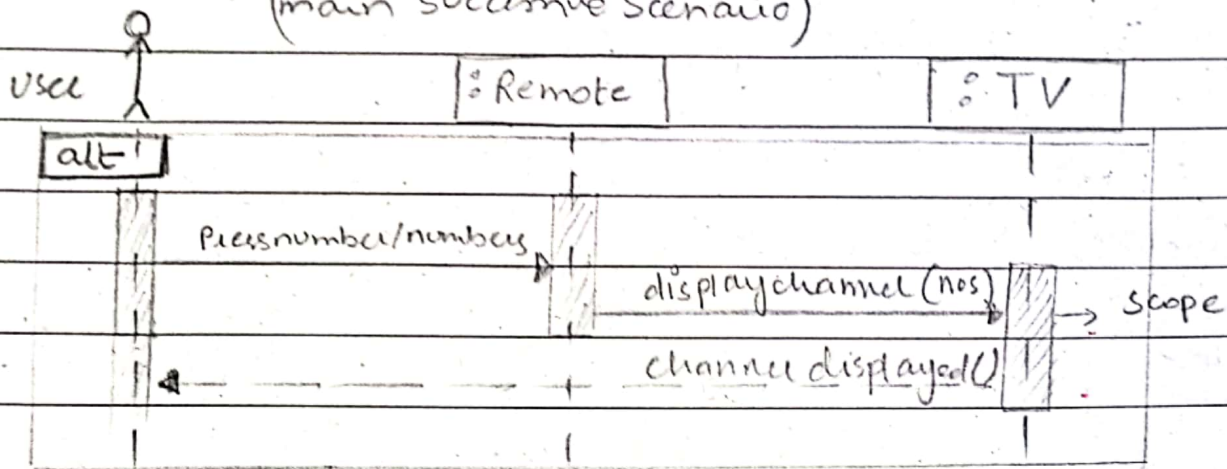 (main succussive scenario)
user
: Remote
: TV
alt
Pressnumber/numbers
displaychannel (nos)
scope
channel displayed()